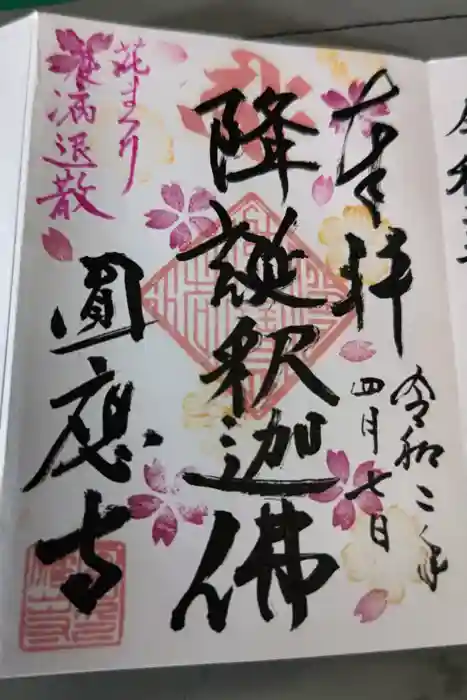 奉拝
令和二年
四月七日
降誕釈迦佛
花まつり
疫病退散
圓應寺